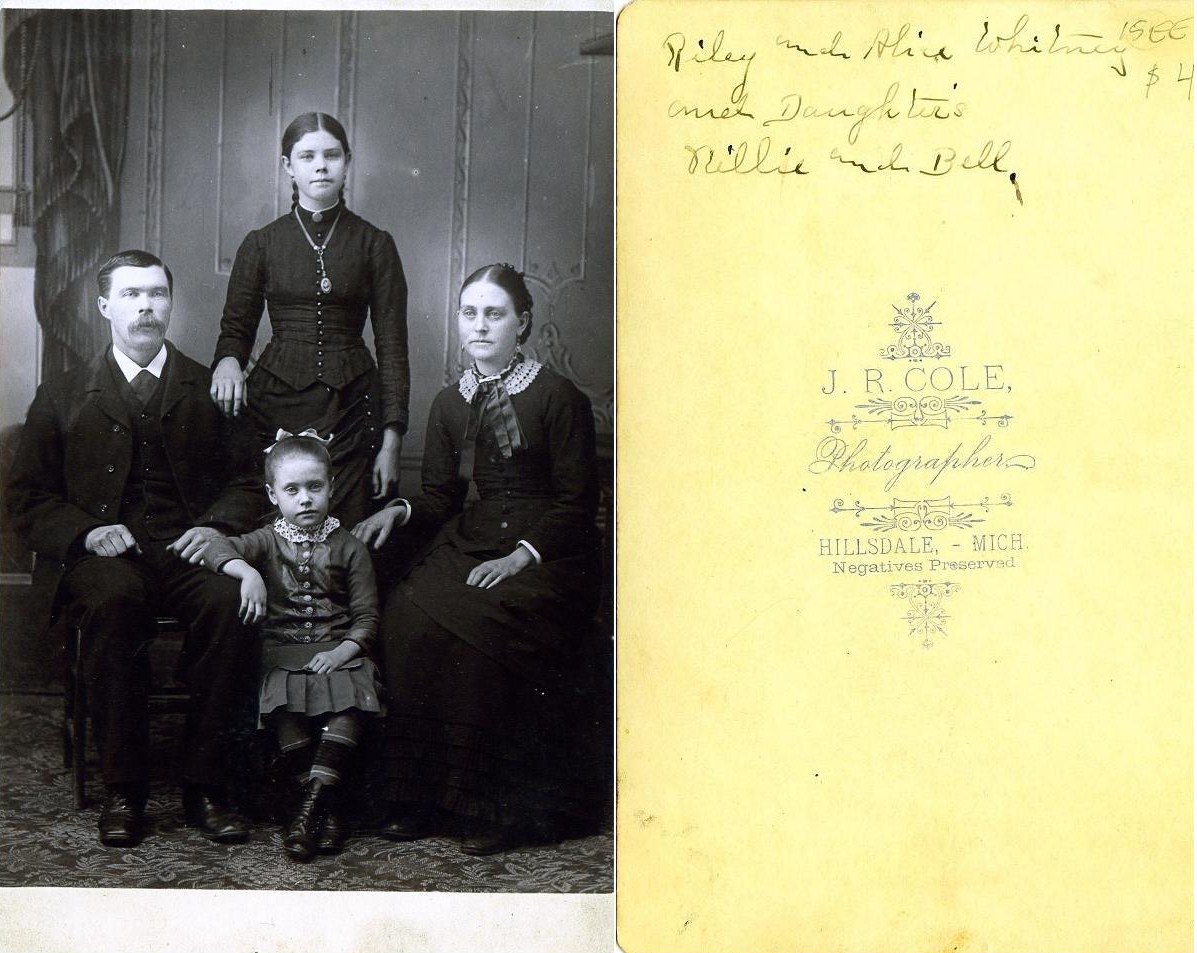 Riley and Alice Whitney
and Daughter's
Nillie and Bell,
$ 4
J. R. COLE,
Photographer
HILLSDALE, - MICH.
Negatives Preserved